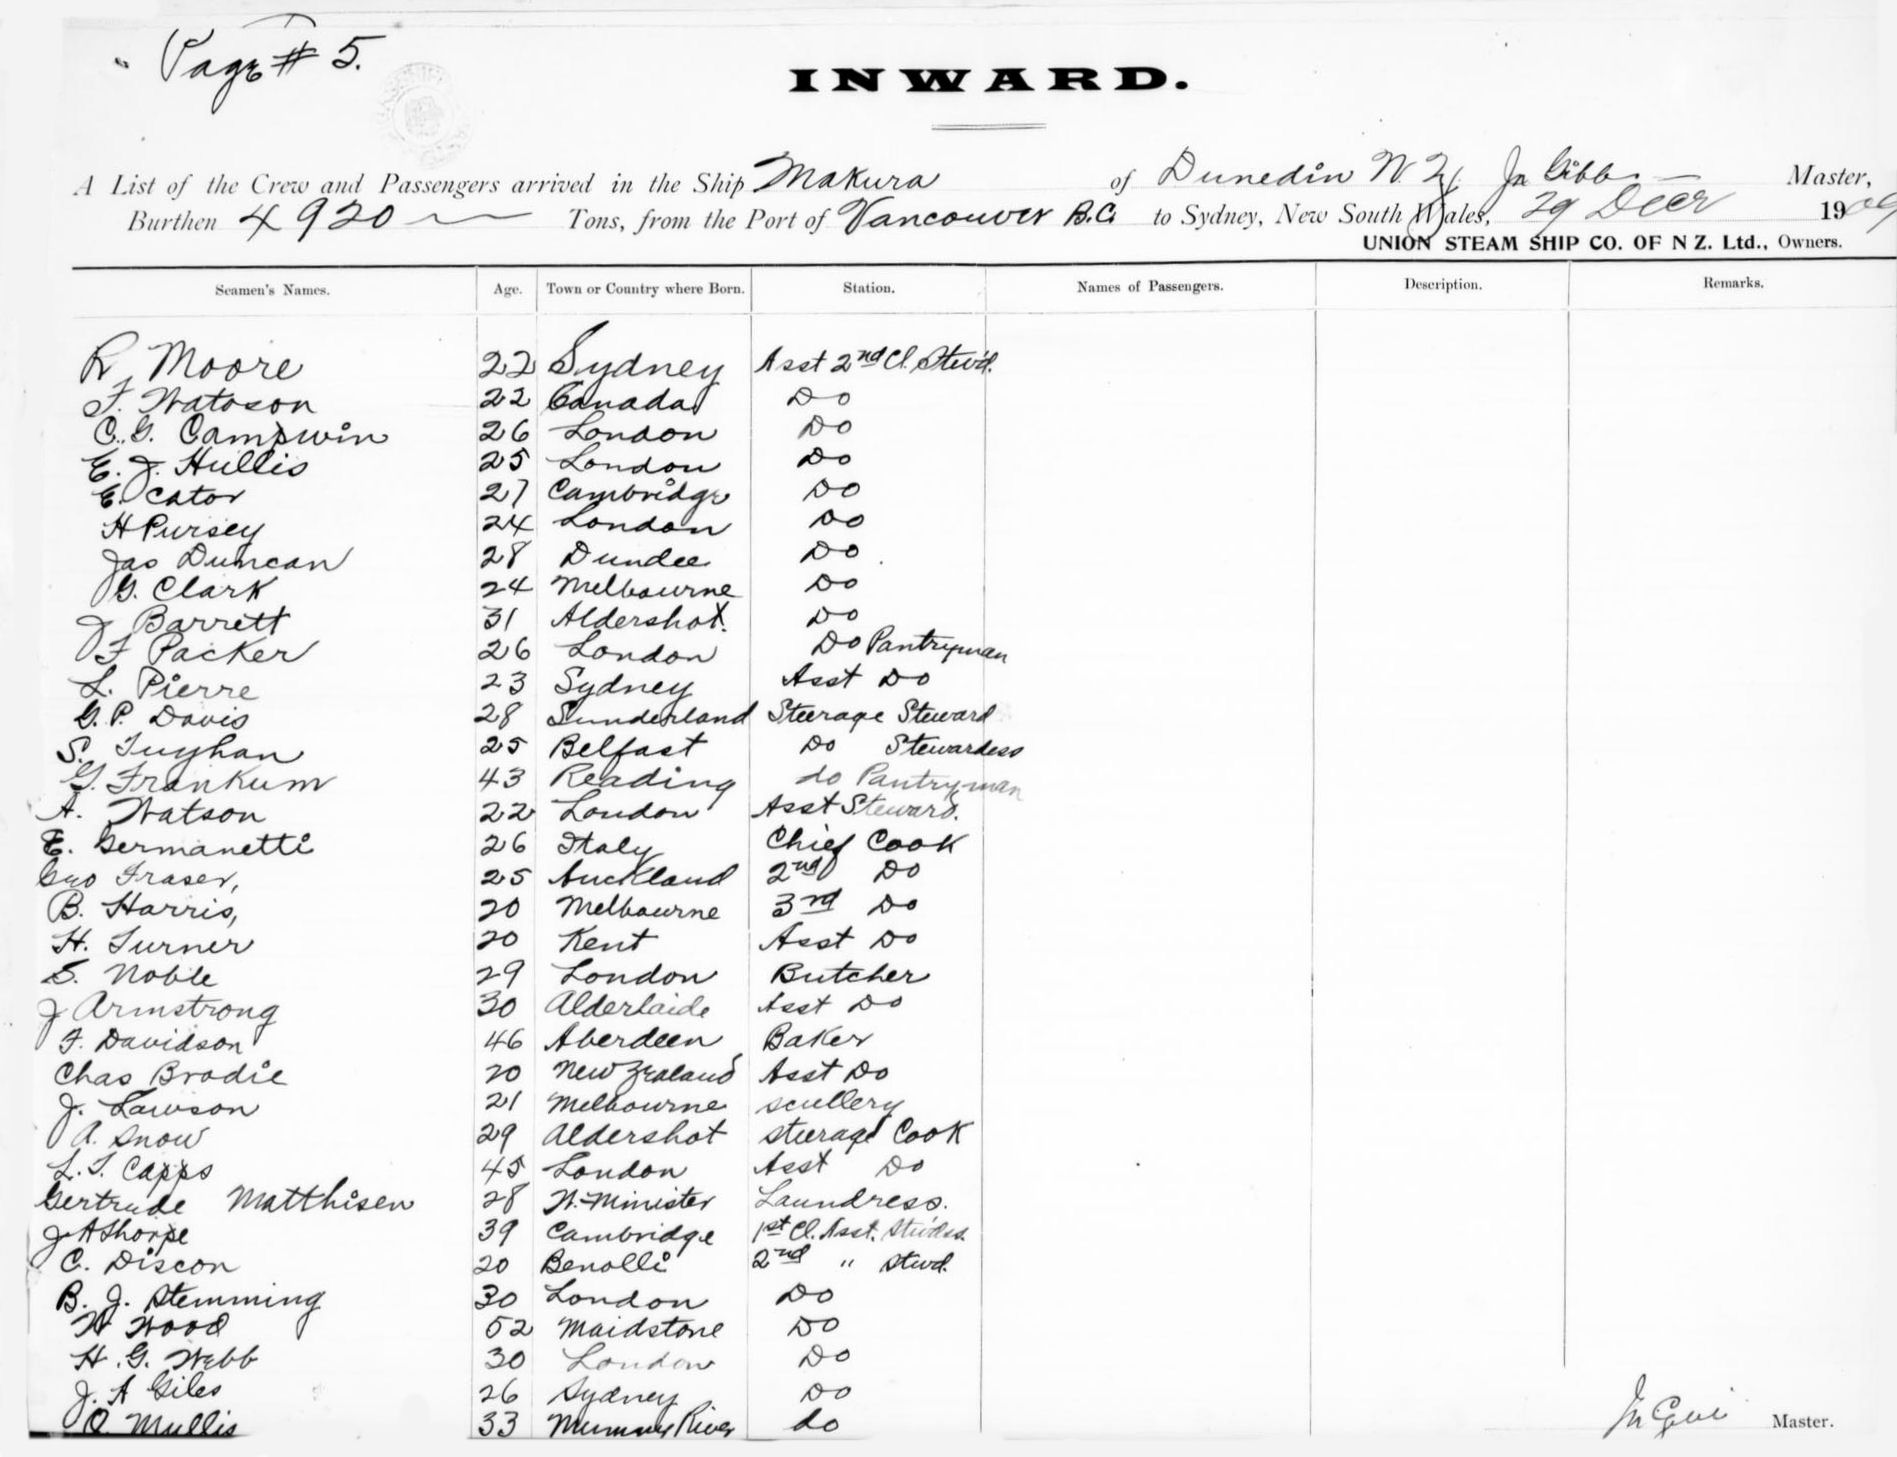 Page # 5.
INWARD.
A List of the Crew and Passengers arrived in the Ship Makura of Dunedin N. Z. Jn Gibb Master,
Burthen 4920 Tons, from the Port of Vancouver B.C. to Sydney, New South Wales, 29 Decr 1909
UNION STEAM SHIP CO. OF N Z. Ltd., Owners.
Seamen's Names. Age. Town or Country where Born. Station. Names of Passengers. Description. Remarks.
R Moore 22 Sydney Asst 2nd Cl. Stwd.
F. Watoson 22 Canada Do
C. G. Campwin 26 London Do
E. J. Hullis 25 London Do
E. Cator 27 Cambridge Do
H Pursey 24 London Do
Jas Duncan 28 Dundee Do
G. Clark 24 Melbourne Do
J Barrett 31 Aldershot. Do
F Packer 26 London Do Pantryman
L. Pierre 23 Sydney Asst Do
G. P. Davis 28 Sunderland Steerage Steward
S. Tughan 25 Belfast Do Stewardess
G. Frankum 43 Reading do Pantryman
A. Watson 22 London Asst Steward.
E. Germanetti 26 Italy Chief Cook
Geo Fraser, 25 Auckland 2nd Do
B. Harris, 20 Melbourne 3rd Do
H. Turner 20 Kent Asst Do
S. Noble 29 London Butcher
J Armstrong 30 Alderlaide Asst Do
F. Davidson 46 Aberdeen Baker
Chas Brodie 20 New Zealand Asst Do
J. Lawson 21 Melbourne scullery
A. Snow 29 Aldershot steerage Cook
L. T. Capps 45 London Asst Do
Gertrude Matthisen 28 W. Minister Laundress.
J A Thorpe 39 Cambridge 1st Cl. Asst. Stwdss.
C. Discon 20 Benolli 2nd " Stwd.
B. J. Stemming 30 London Do
W Wood 52 Maidstone Do
H. G. Webb 30 London Do
J. A Giles 26 Sydney Do
O. Mullis 33 River do
Master.